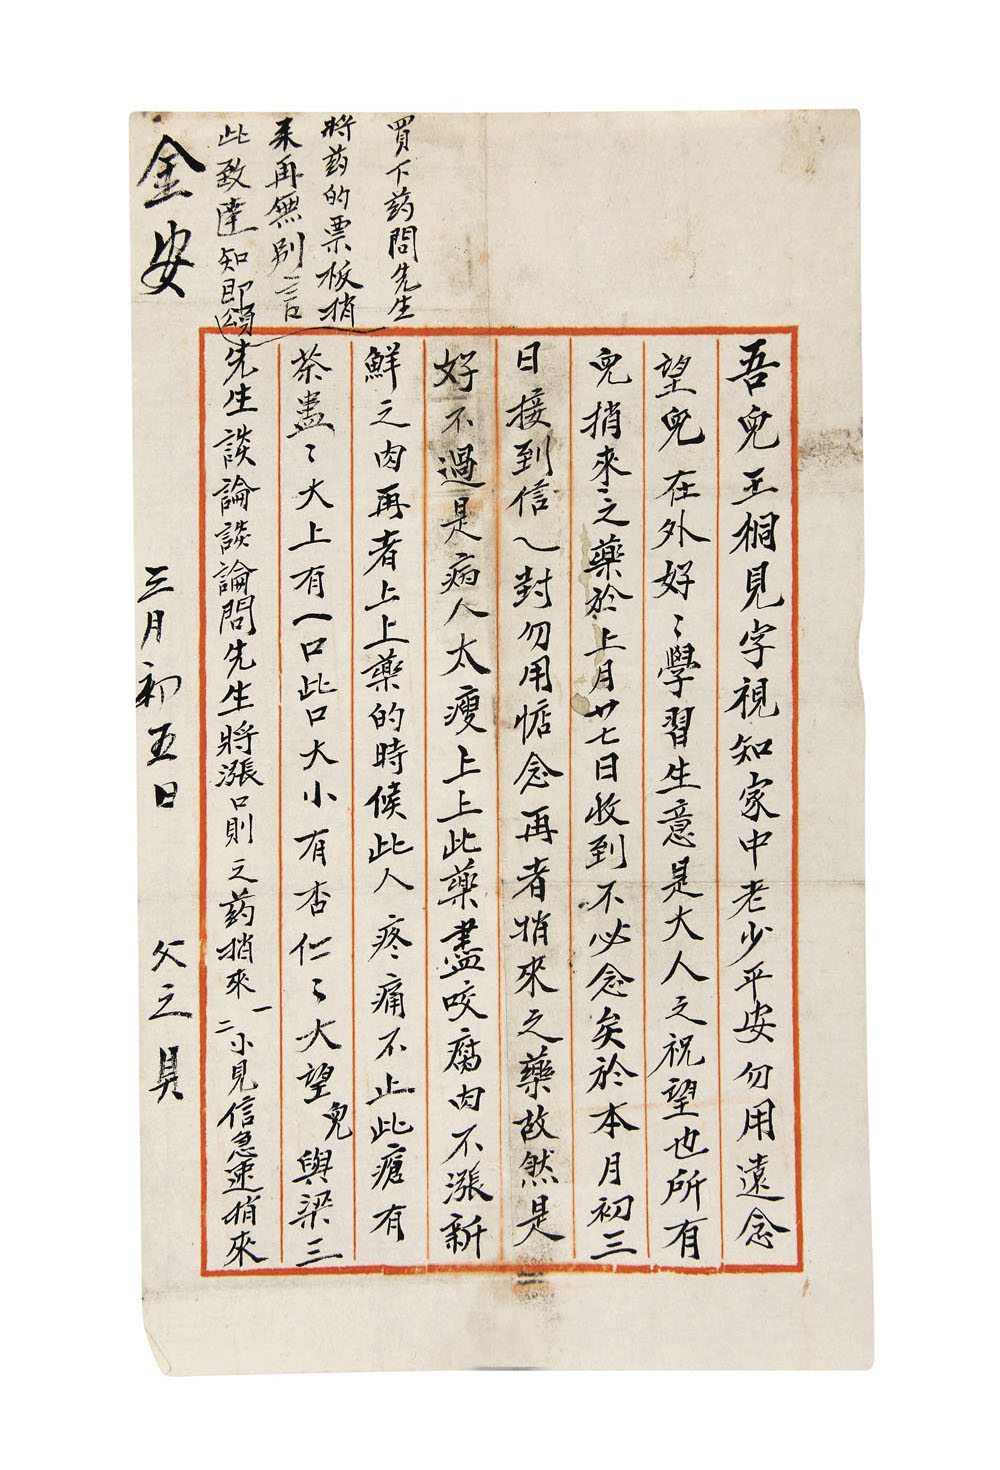 吾兒王桐見字視知家中老少平安勿用遠念
望兒在外好〻學習生意是大人之祝望也所有
兒捎來之藥於上月廿七日收到不必念矣於本月初三
日接到信乀對勿用惦念再者捎來之藥故然是
好不過是病人太瘦上上此藥盡咬腐肉不漲新
鮮之肉再者上上藥的時候此人疼痛不止此瘡有
茶盞〻大上有一口此口大小有杏仁〻大望兒與梁三
先生談論談論問先生將漲口則之药捎來一二小見信急速捎來
買下药問先生
將药的票板捎
来再無別言
此致達知即頌
金安
三月初五日 父之具